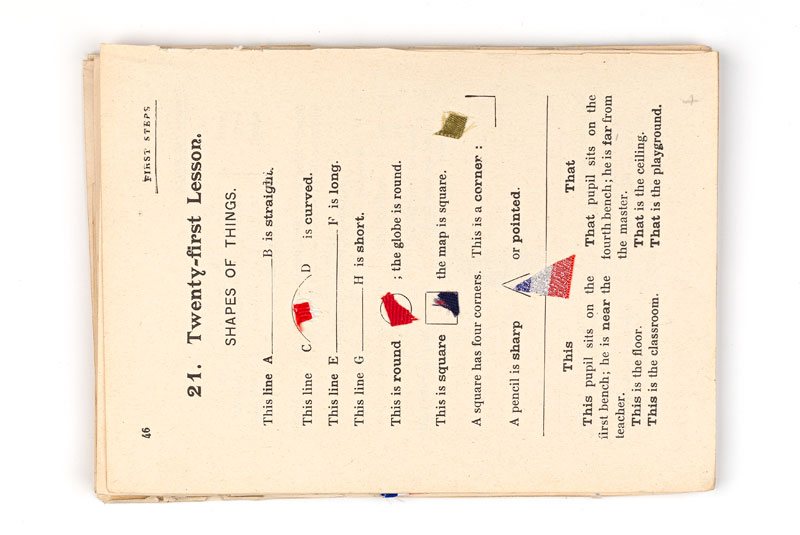 46
FIRST STEPS
21. Twenty-first Lesson.
SHAPES OF THINGS.
This line A B is straight.
This line C D is curved.
This line E F is long.
This line G H is short.
This is round ; the globe is round.
This is square the map is square.
A square has four corners. This is a corner :
A pencil is sharp or pointed.
This
This pupil sits on the
first bench; he is near the
teacher.
This is the floor.
This is the classroom.
That
That pupil sits on the
fourth bench; he is far from
the master.
That is the ceiling.
That is the playground.